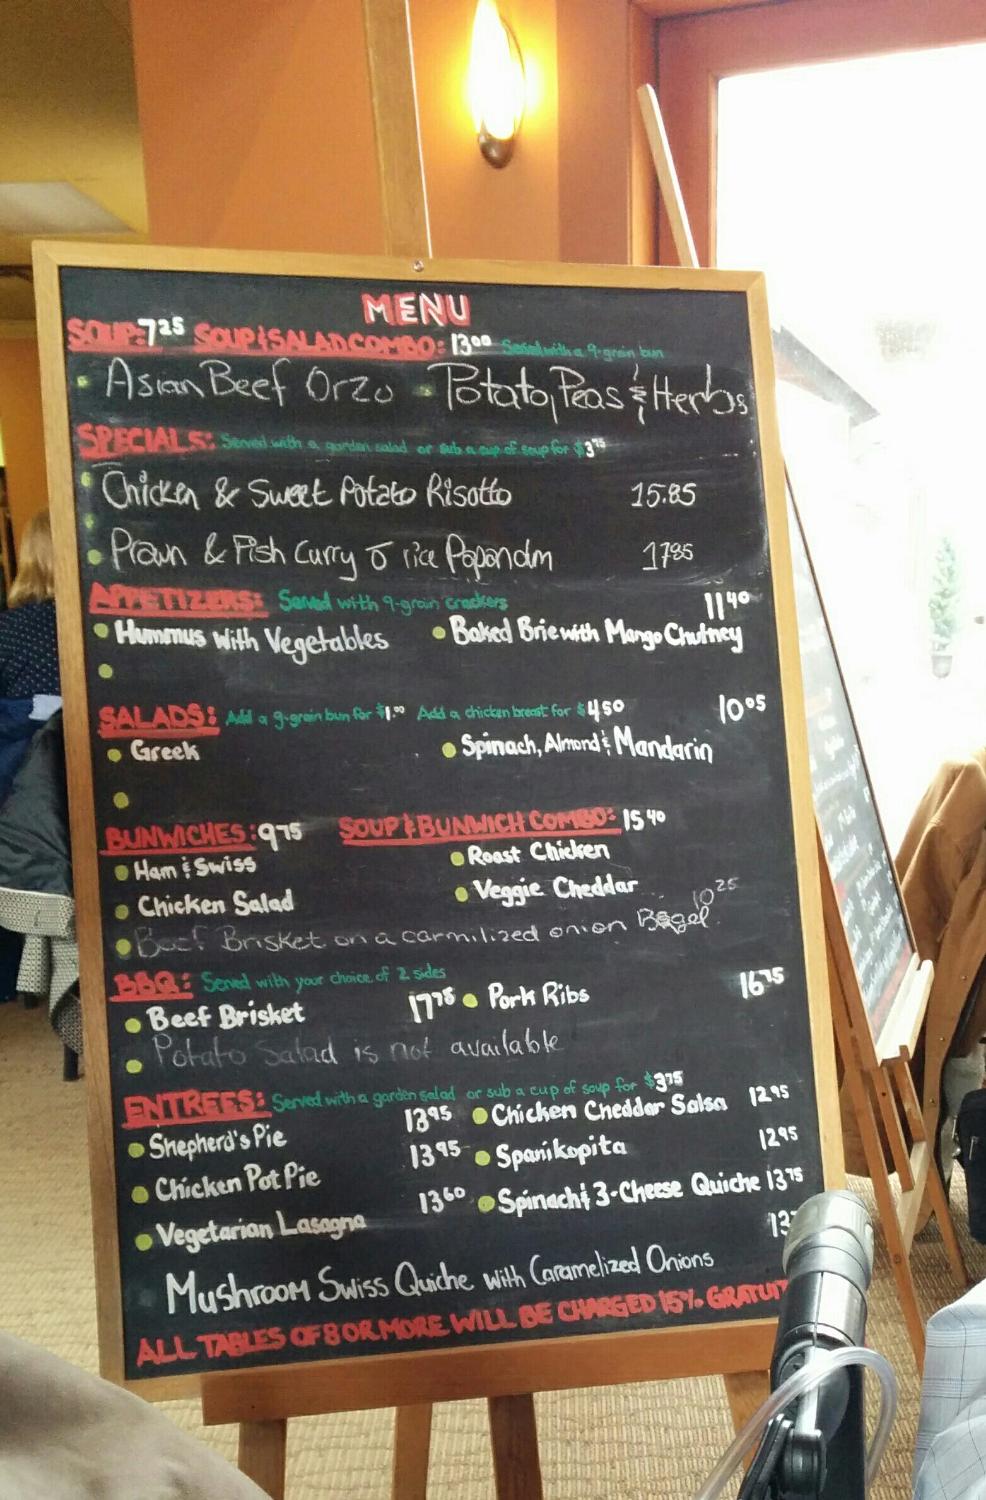 MENU
SOUP: 7.25 SOUP & SALAD COMBO: 13.00 Served with a 9-grain bun
Asian Beef Orzo Potato, Peas & Herbs
SPECIALS: Served with a garden salad or sub a cup of soup for $3.75
Chicken & Sweet Potato Risotto 15.85
Prawn & Fish Curry c̄ rice Papandm 1785
APPETIZERS: Served with 9-grain crackers 11 40
Hummus with Vegetables Baked Brie with Mango Chutney
SALADS: Add a 9-grain bun for $1.00 Add a chicken breast for $4 50 10 05
Greek Spinach, Almond & Mandarin
BUNWICHES: 9 75 SOUP & BUNWICH COMBO: 15 40
Ham & Swiss Roast Chicken
Chicken Salad Veggie Cheddar
Beef Brisket on a carmilized onion Bagel 10 25
BBQ: Served with your choice of 2 sides
Beef Brisket 17 75 Pork Ribs 16 75
Potato Salad is not available
ENTREES: Served with a garden salad or sub a cup of soup for $3 75
Shepherd's Pie 13 95 Chicken Cheddar Salsa 12 95
Chicken Pot Pie 13 95 Spanikopita 12 95
Vegetarian Lasagna 13 60 Spinach & 3-Cheese Quiche 13 75
Mushroom Swiss Quiche with Caramelized Onions
ALL TABLES OF 8 OR MORE WILL BE CHARGED 15% GRATUIT